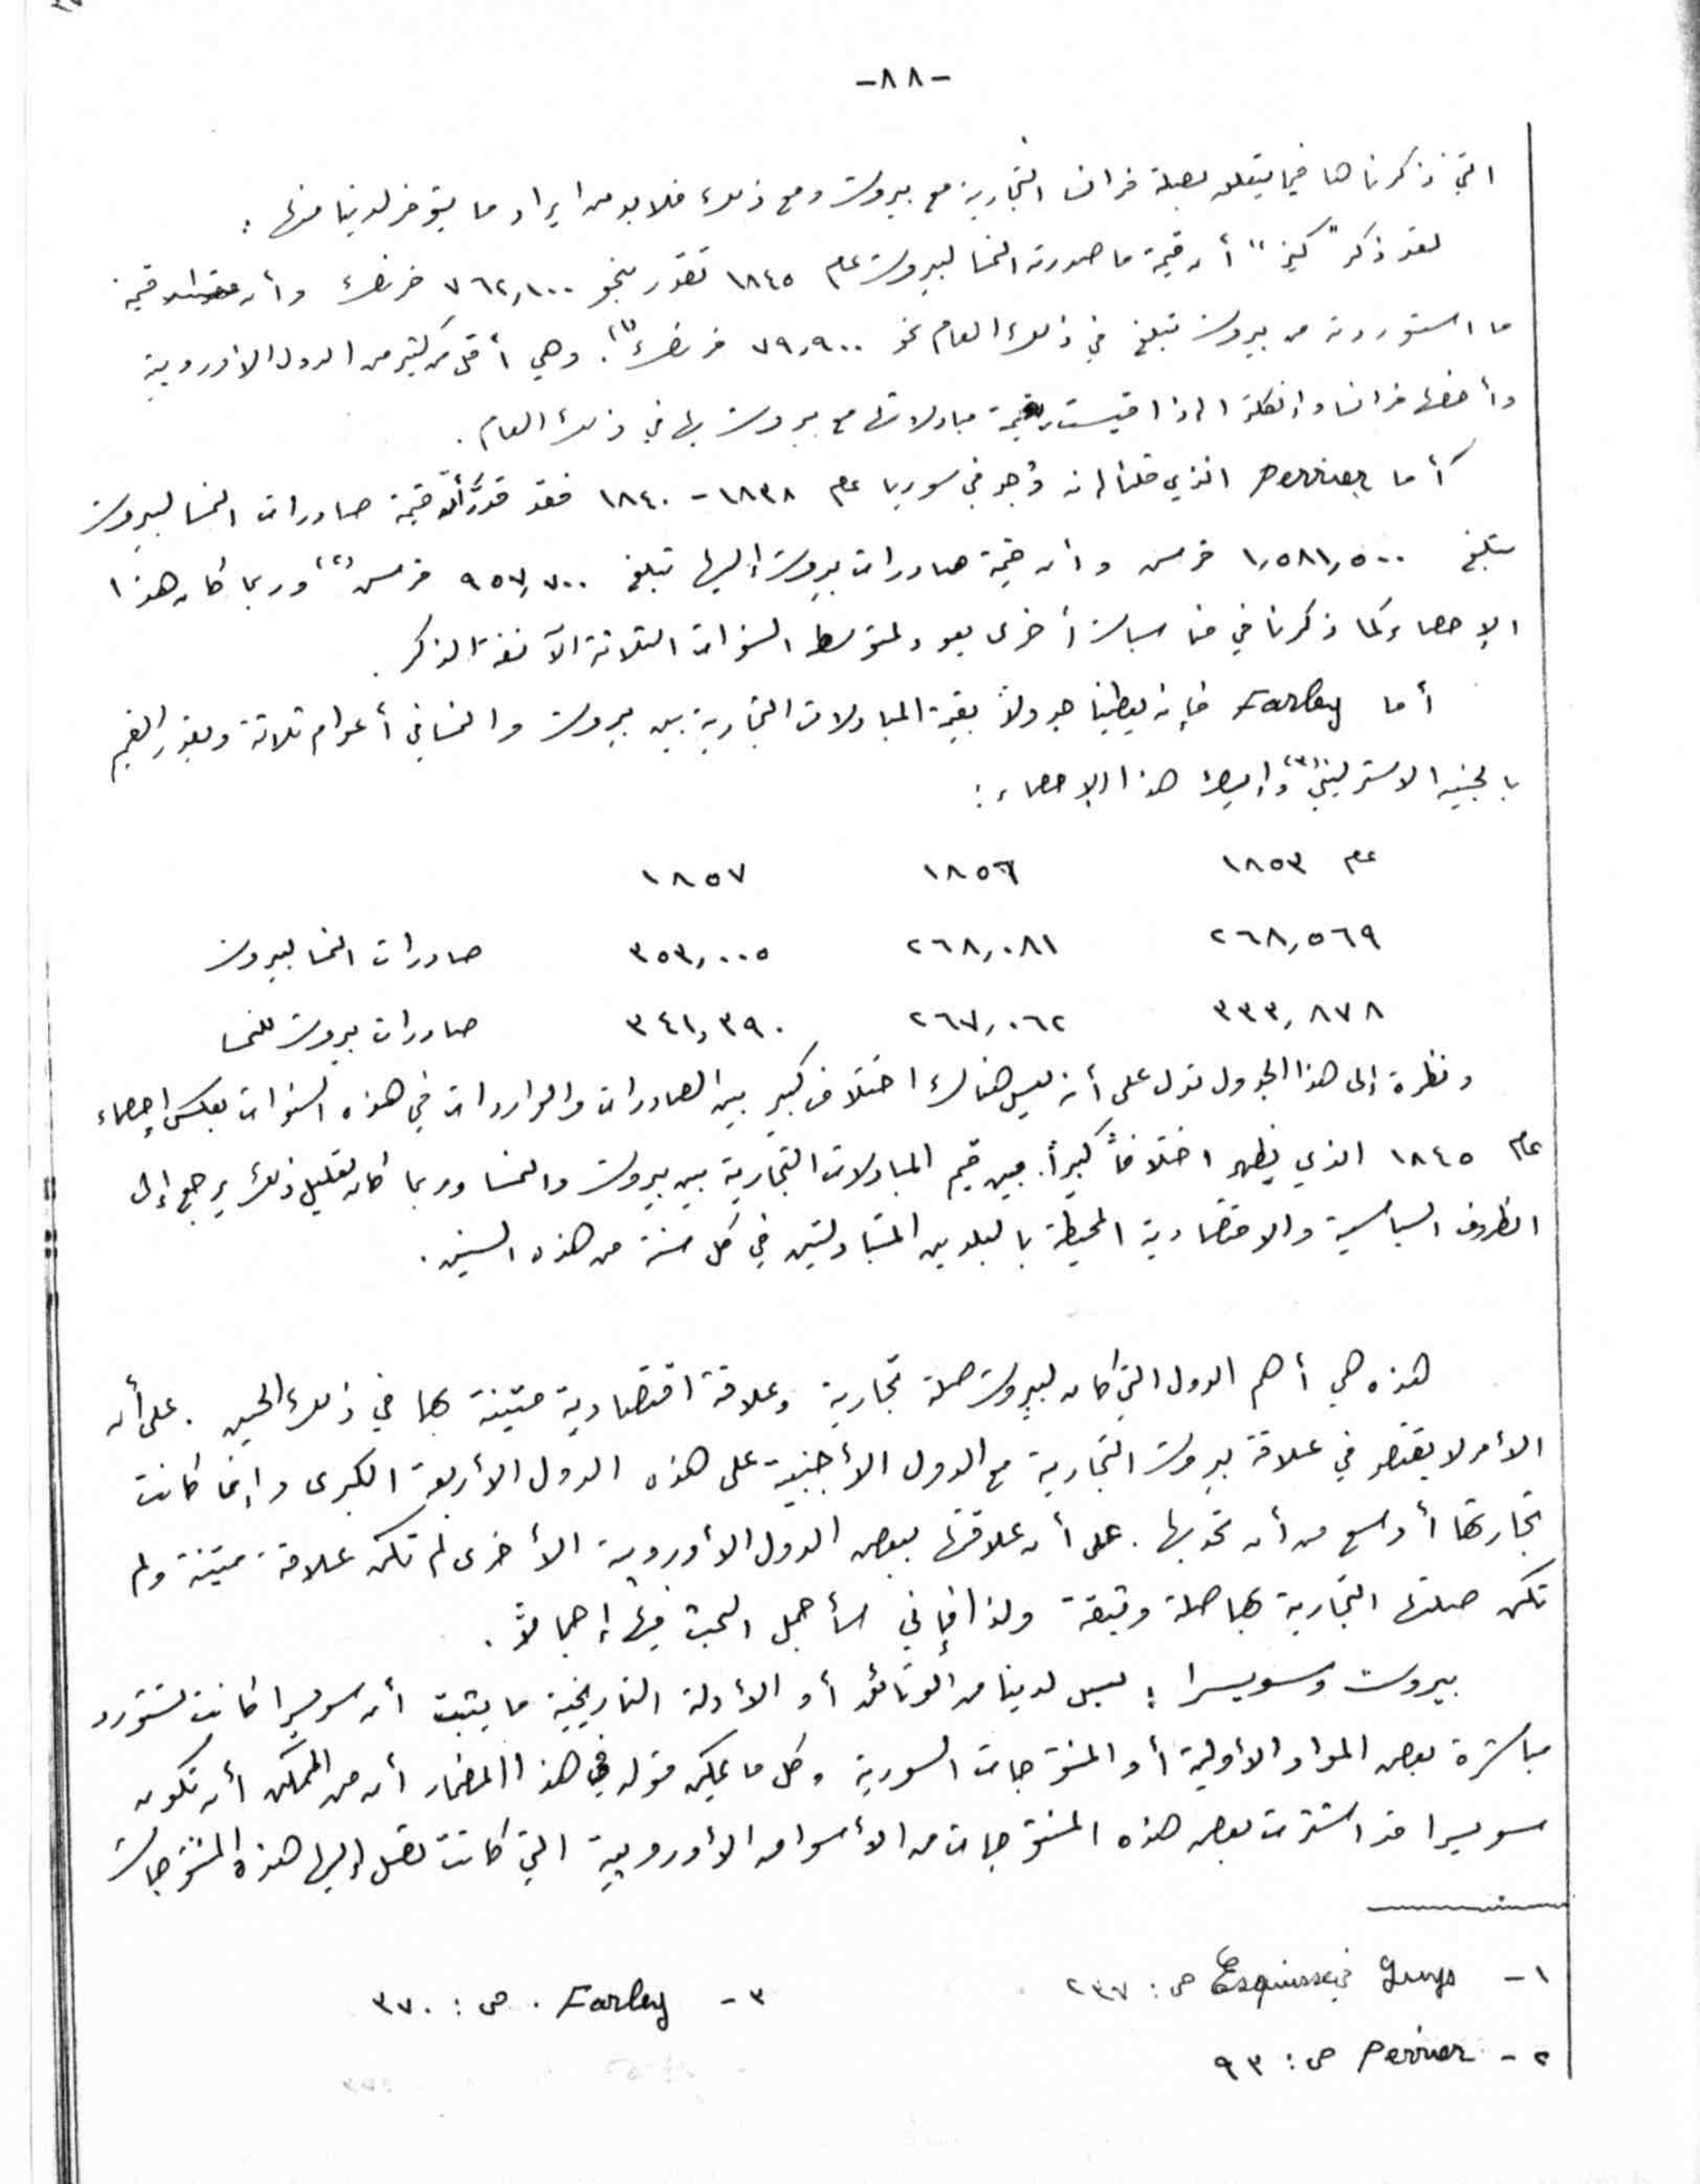 -٨٨-
التي ذكرناها فيما يتعلق بصلة فرنسا التجارية مع بيروت ومع ذلك فلابد من ايراد ما يتوفر لدينا منها :
لقد ذكر "كيز" أن قيمة ما صدرته النمسا لبيروت عام ١٨٤٥ تقدر بنحو ٧٦٢,١٠٠ فرنك وأن قيمة
ما استوردته من بيروت تبلغ في ذلك العام نحو ٧٩,٩٠٠ فرنك(١). وهي أقل من كثير من الدول الأوروبية
وأخصها فرنسا وانكلترا اذا قيست قيمة مبادلاتها مع بيروت بها في ذلك العام .
أما Perrier الذي قلنا انه وُجد في سوريا عام ١٨٣٨ - ١٨٤٠ فقد قدَّر أن قيمة صادرات النمسا لبيروت
تبلغ ١,٥٨١,٥٠٠ فرنك وأن قيمة صادرات بيروت إليها تبلغ ٩٥٧,٧٠٠ فرنك(٢) وربما كان هذا
الإحصاء كما ذكرنا في مناسبات أخرى يعود لمتوسط السنوات الثلاثة الآنفة الذكر .
أما Farley فإنه يعطينا جدولاً بقيمة المبادلات التجارية بين بيروت والنمسا في أعوام ثلاثة ويقدر القيم
بالجنيه الاسترليني(٣) وإليك هذا الإحصاء :
عام ١٨٥٣ ١٨٥٦ ١٨٥٧
٢٦٨,٥٦٩ ٢٦٨,٠٨١ ٣٥٣,٠٠٥ صادرات النمسا لبيروت
٣٣٣,٨٧٨ ٢٦٧,٠٦٢ ٣٤١,٣٩٠ صادرات بيروت للنمسا
ونظرة إلى هذا الجدول تدل على أنه ليس هناك اختلاف كبير بين الصادرات والواردات في هذه السنوات بعكس إحصاء
عام ١٨٤٥ الذي يظهر اختلافاً كبيراً. بين قيم المبادلات التجارية بين بيروت والنمسا وربما كان تعليل ذلك يرجع إلى
الظروف السياسية والاقتصادية المحيطة بالبلدين المتبادلتين في كل سنة من هذه السنين .
هذه هي أهم الدول التي كان لبيروت صلة تجارية وعلاقة اقتصادية متينة بها في ذلك الحين . على أن
الأمر لا يقتصر في علاقة بيروت التجارية مع الدول الأجنبية على هذه الدول الأربعة الكبرى وإنما كانت
تجارتها أوسع من أن تحد بها . على أن علاقتها ببعض الدول الأوروبية الأخرى لم تكن علاقة متينة ولم
تكن صلتها التجارية بها صلة وثيقة ولذا فإني سأجمل البحث فيها إجمالاً .
بيروت وسويسرا : ليس لدينا من الوثائق أو الأدلة التاريخية ما يثبت أن سويسرا كانت تستورد
مباشرة بعض المواد الأولية أو المنتوجات السورية وكل ما يمكن قوله في هذا المضمار أن من الممكن أن تكون
سويسرا قد اشترت بعض هذه المنتوجات من الأسواق الأوروبية التي كانت تصل إليها هذه المنتوجات
١ - Guys في Esquisse ص : ٢٣٧
٣ - Farley . ص : ٣٧٠
٢ - Perrier ص : ٩٣